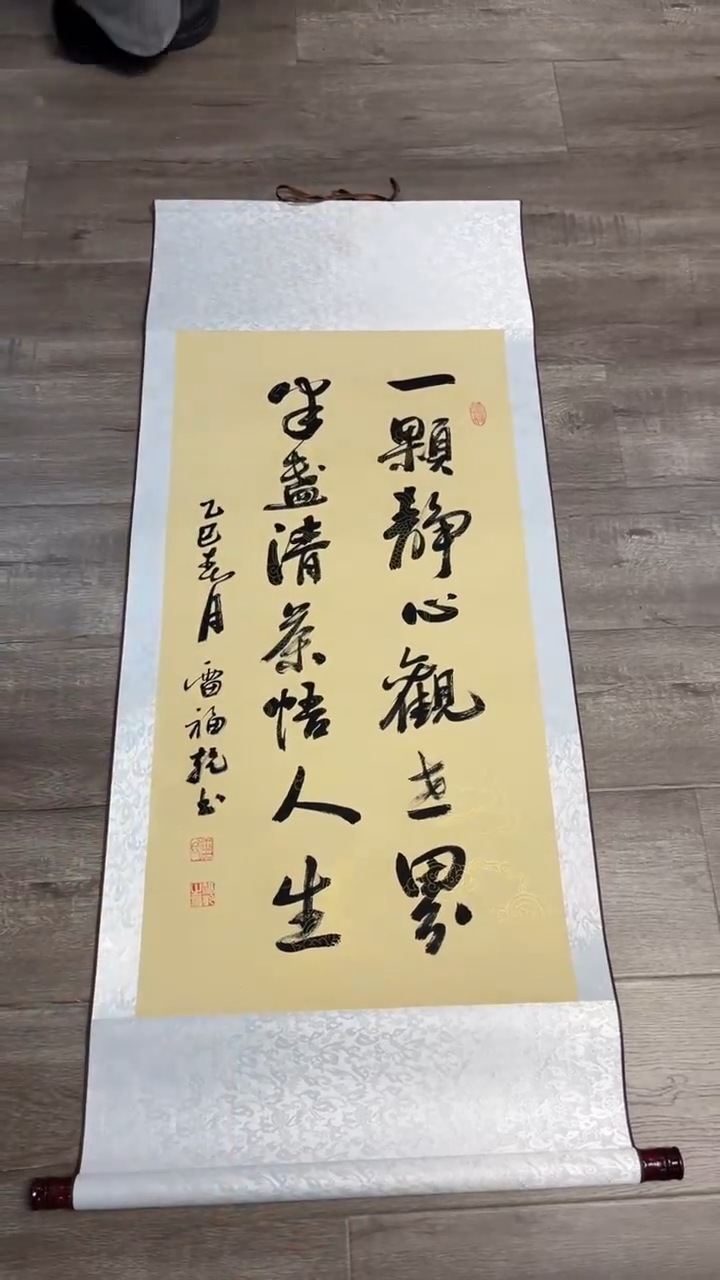 一顆靜心觀世界
半盞清茶悟人生
乙巳春月 雷福乾书